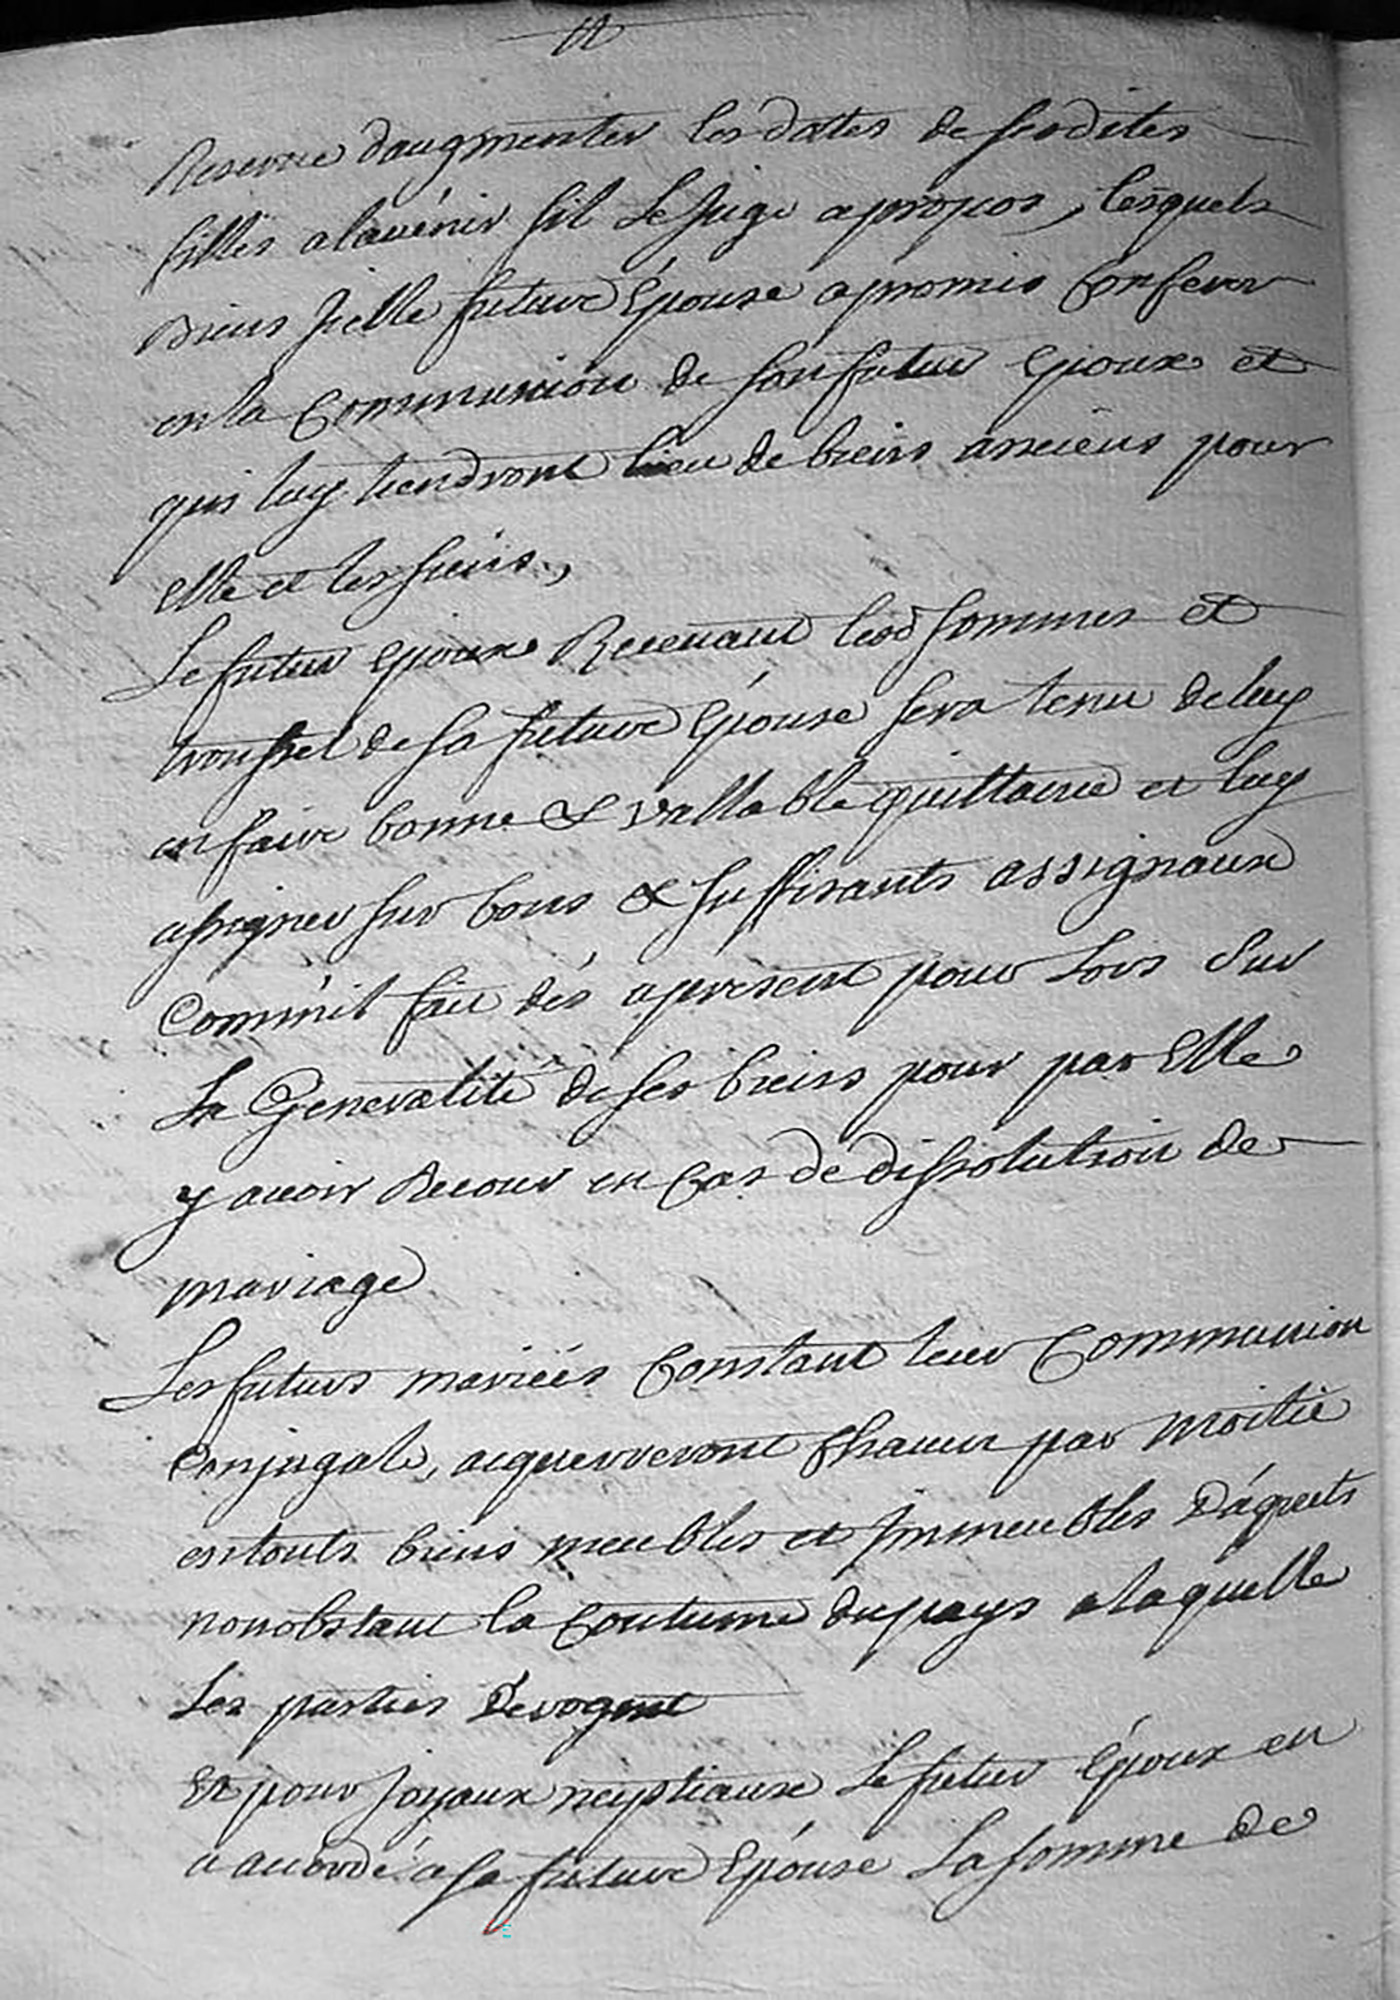 Reserve d'augmenter les dottes de sesdites
filles a lavénir sil le juge apropos, lesquels
biens icelle future Epouse apromis Conferer
en la Communion de son futur Epoux et
qui luy tiendront lieu de biens anciens pour
elle et les siens,
Le futur Epoux Recevant lesd sommes et
troussel de sa future Epouse sera tenu de luy
en faire bonne & vallable quittance et luy
assigner sur bons & suffisants assignaux
comm'il fait dés apresent pour Lors Sur
La Generalité de ses biens pour par Elle
y avoir Recour en Cas de dissolution de
mariage
Les futurs mariés Constant leur Communion
Conjugale, acquerreront Chacun par moitié
en touts biens meubles et immeubles D'áquets
nonobstant la Coutume du pays alaquelle
Les parties dérogent
Et pour joyaux nuptiaux Le futur Epoux en
a accordé a sa future Epouse La somme de